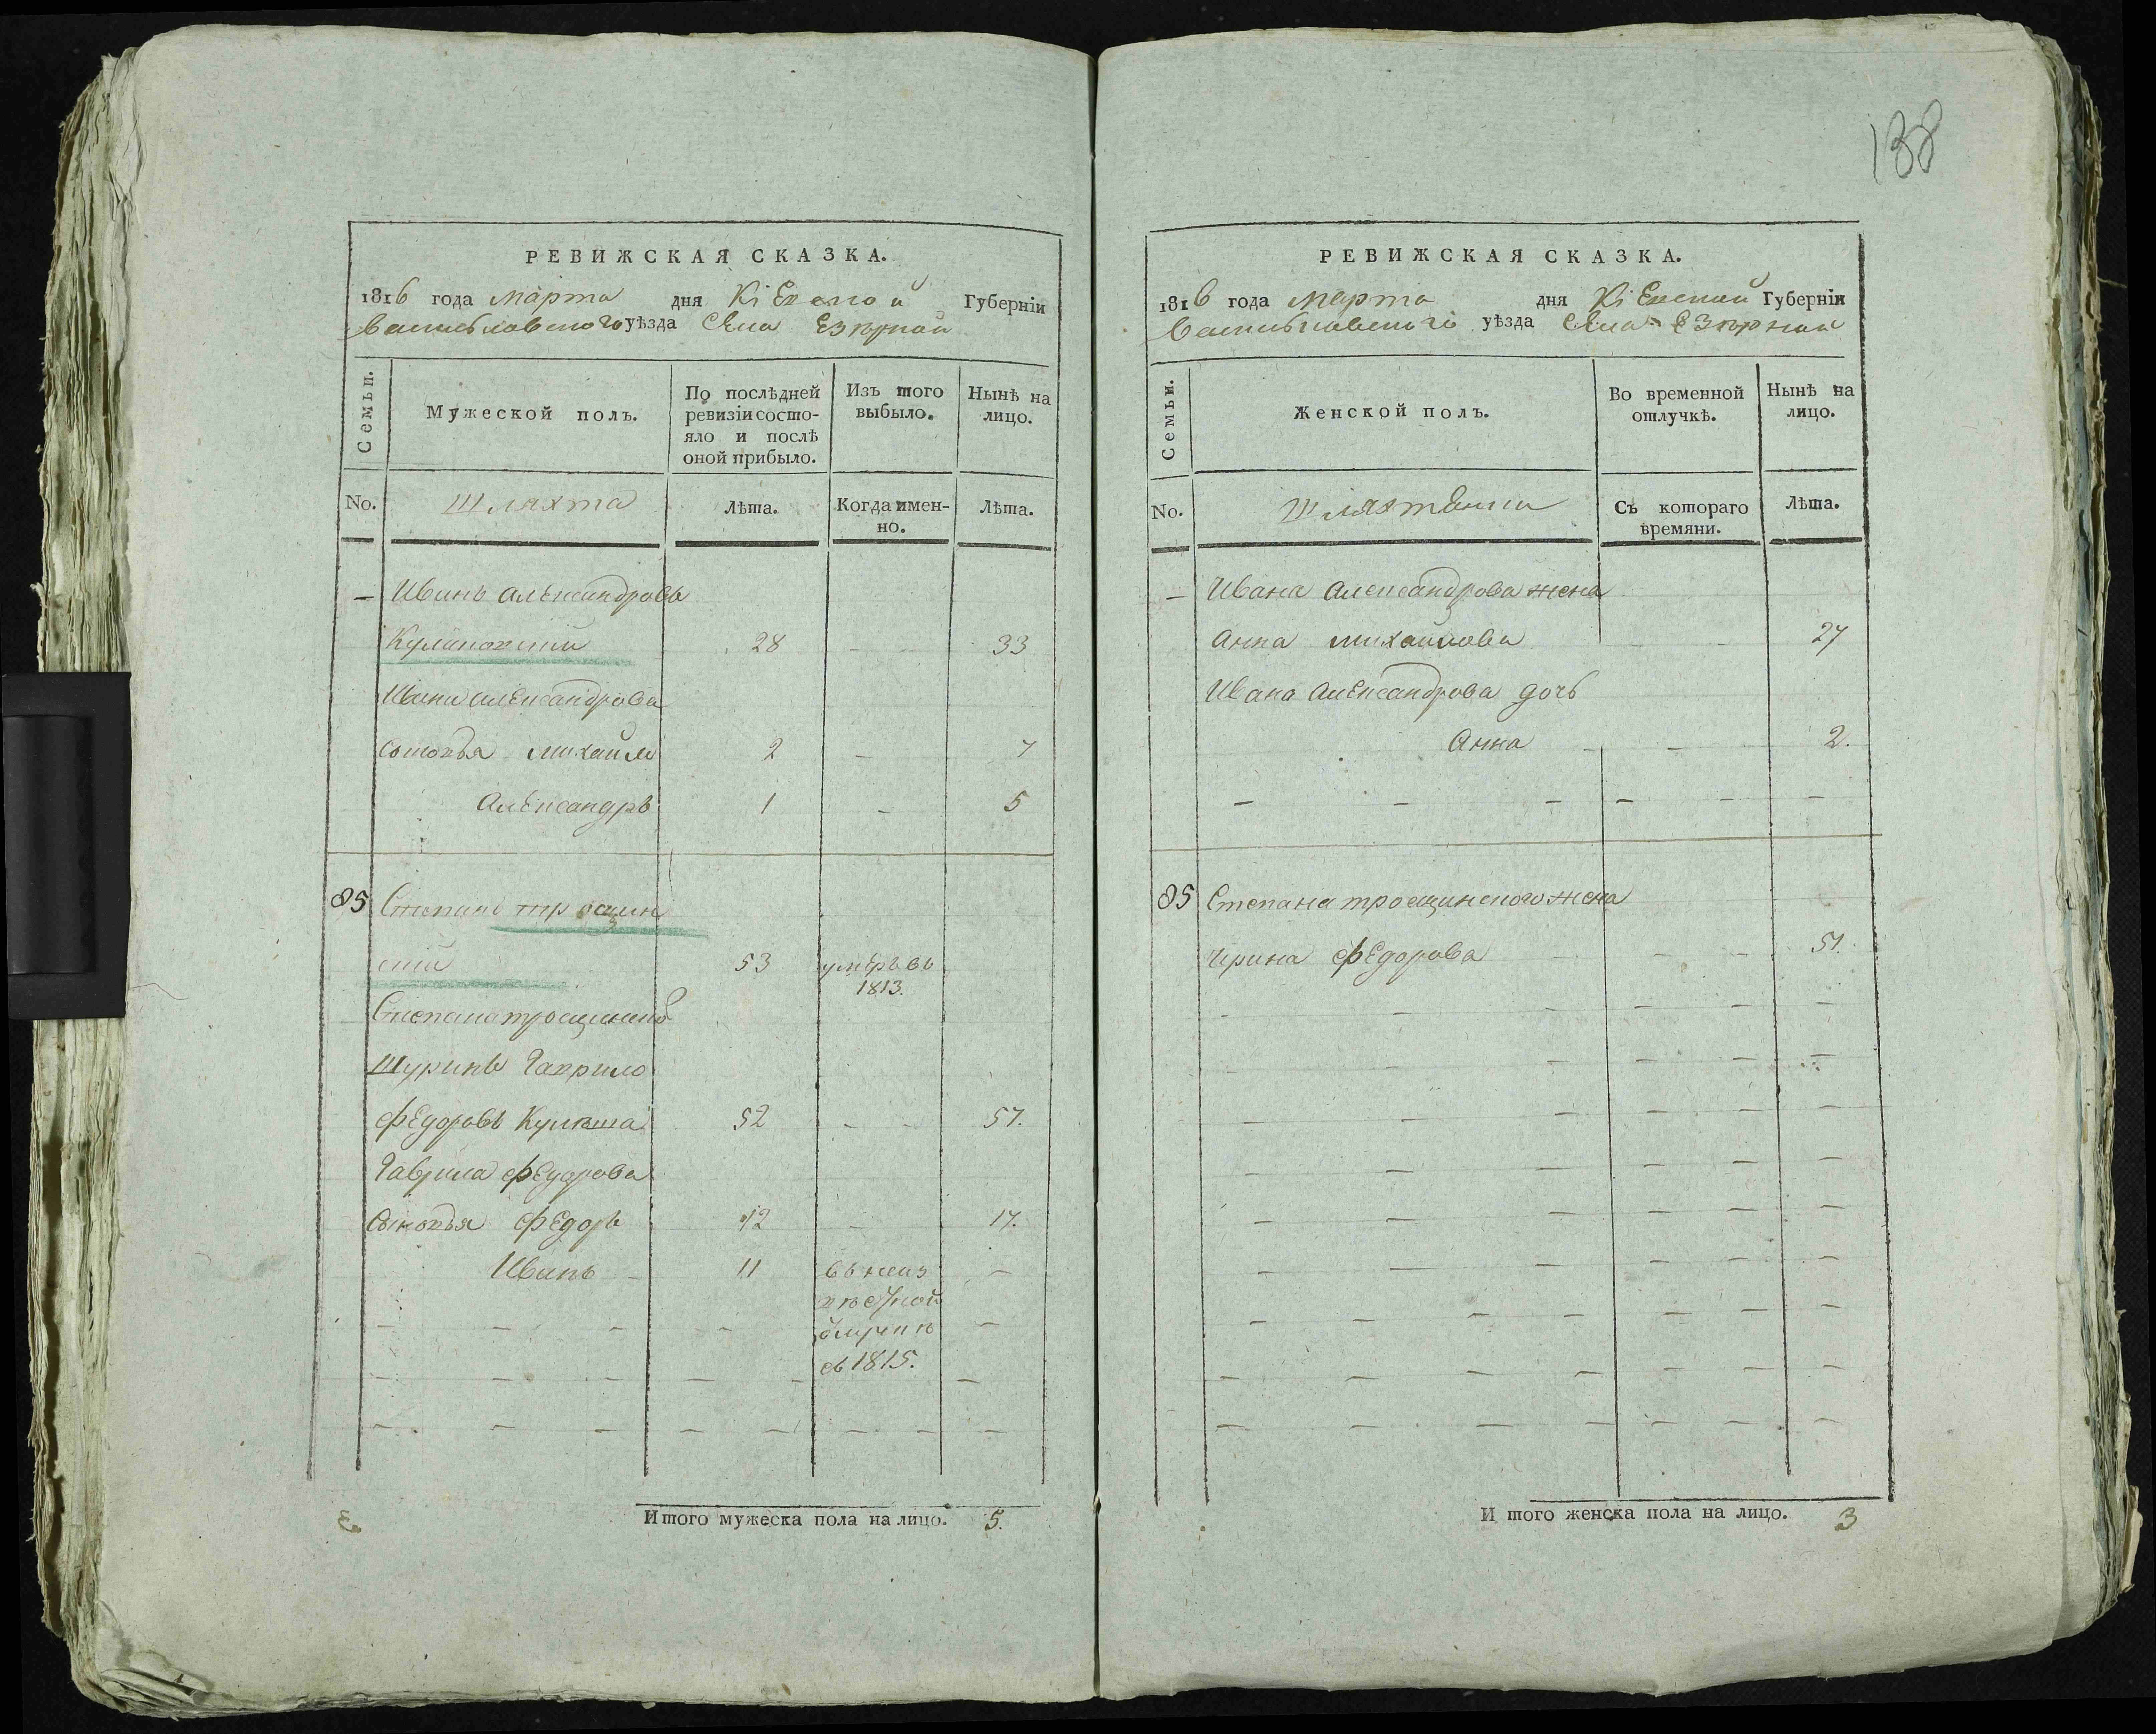 138
РЕВИЖСКАЯ СКАЗКА.
1816 года марта дня Кіевской Губерніи
Васильковского уѣзда Села Езѣрной
Семьи.
Мужеской полъ.
По послѣдней ревизіи состо-
яло и послѣ
оной прибыло.
Изъ того
выбыло.
Нынѣ на
лицо.
No.
Шляхта
Лѣта.
Когда имен-
но.
Лѣта.
— Иванъ Александровъ
28 — 33
Ивана Александрова
сыновья Михайло 2 — 7
Александръ 1 — 5
85 Степанъ трощин
ский 53 умеръ въ
1813.
Степана трощинског
Шуринъ Гаврило
Федоровъ Кулѣша 52 — — 57.
Гаврила Федорова
Сыновья Федоръ 12 — 17.
Иванъ — 11 въ неиз
вѣсной —
отлучкѣ
съ 1815.
Итого мужеска пола на лицо. 5.
РЕВИЖСКАЯ СКАЗКА.
1816 года Марта дня Кіевской Губерніи
Васильковского уѣзда Села Езѣрной
Семьи.
Женской полъ.
Во временной
отлучкѣ.
Нынѣ на
лицо.
No.
Шляхтянки
Съ котораго
времяни.
Лѣта.
— Ивана Александрова жена
Анна Михайлова — — 27
Ивана Александрова дочь
Анна — — 2.
85 Степана трощинского жена
Ирина Федорова — — — 51.
И того женска пола на лицо. 3